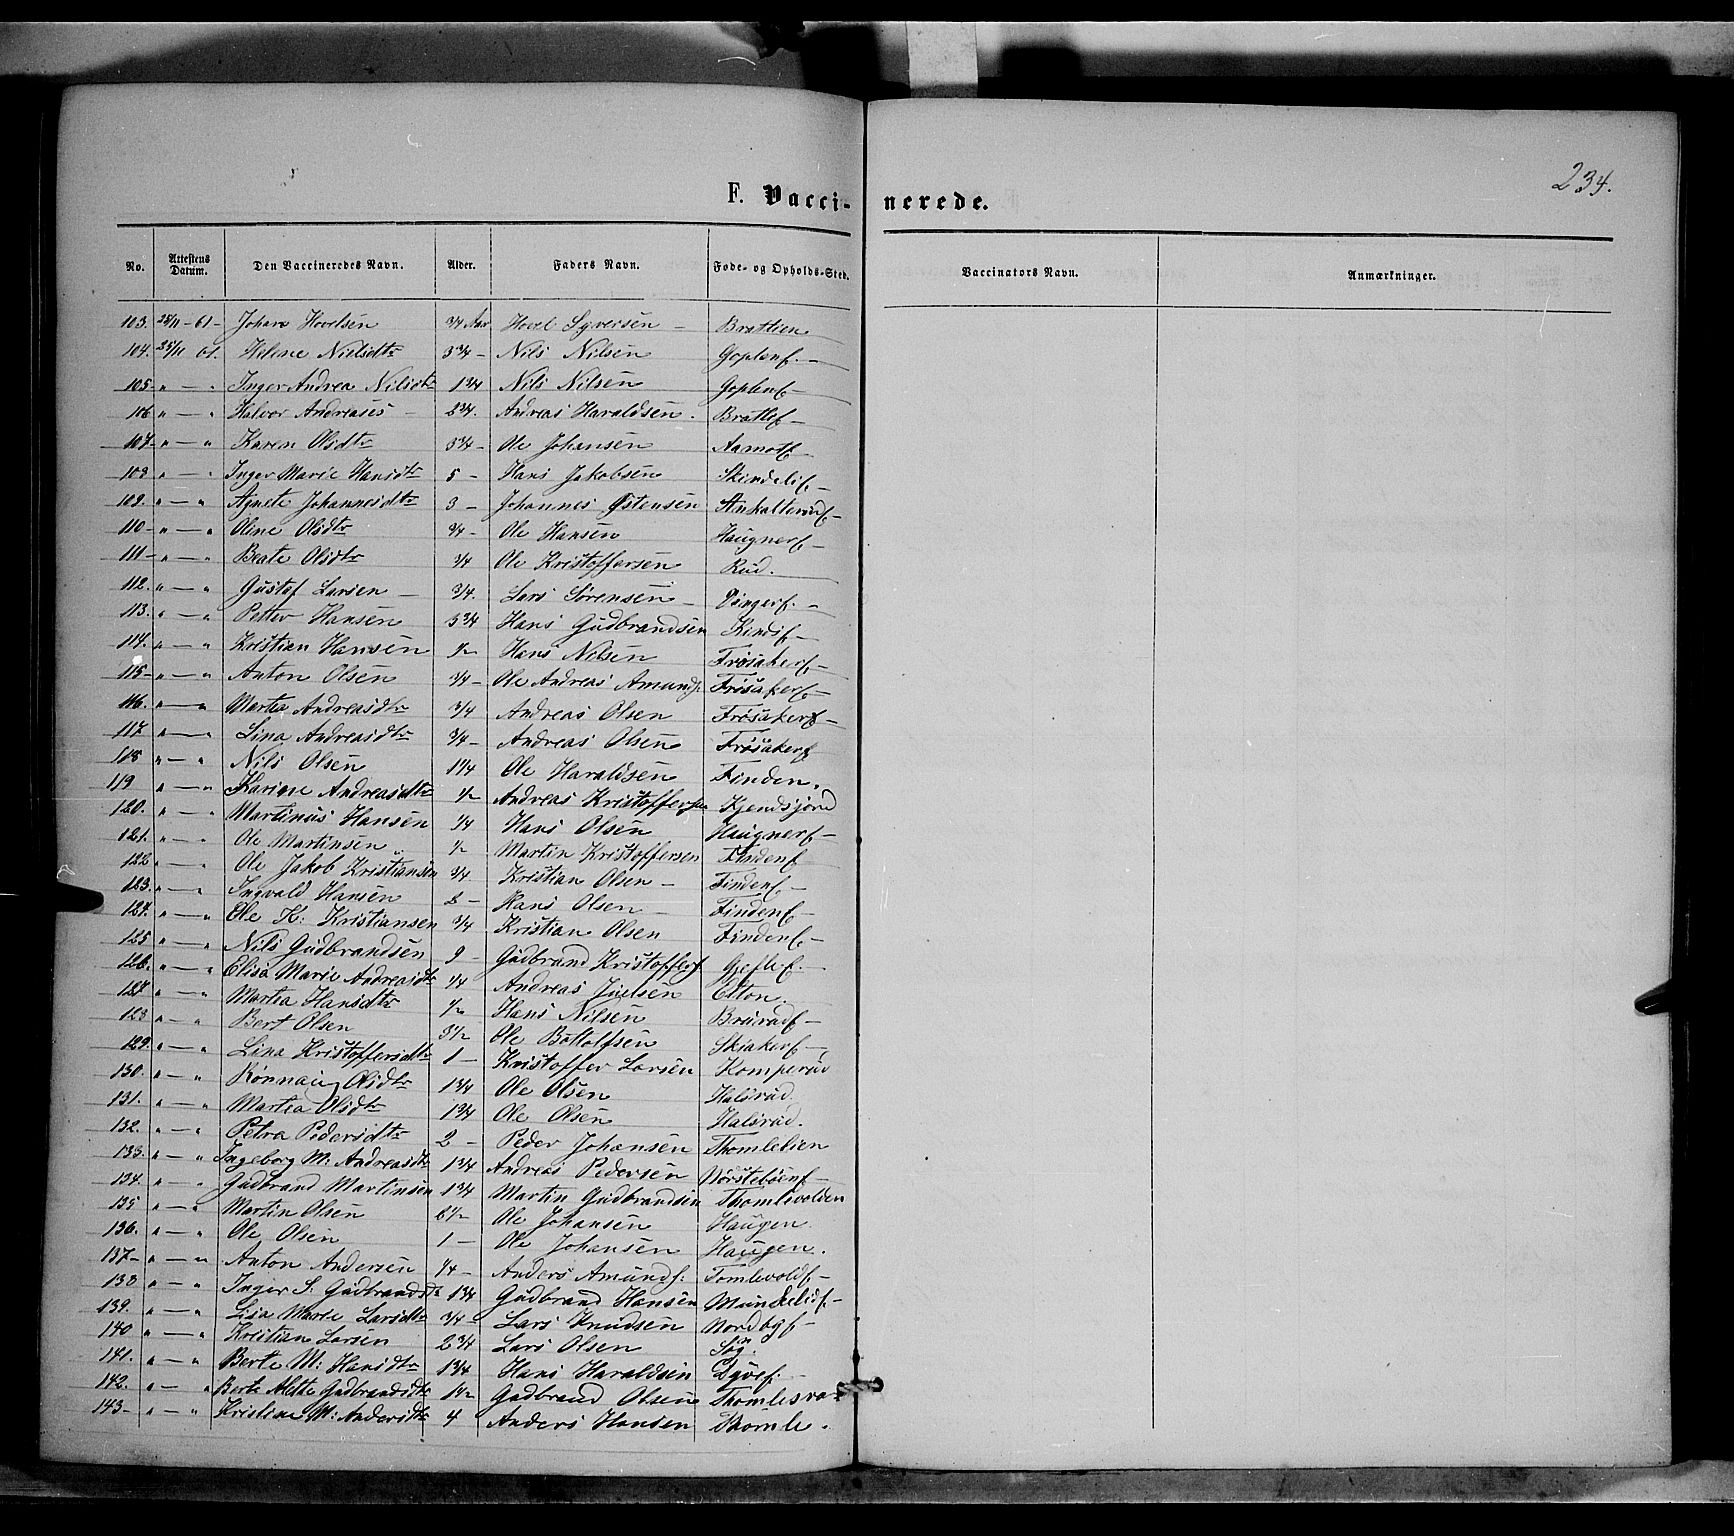 234.
F. Vaccinerede.
No. Attestens Datum. Den Vaccineredes Navn. Alder. Faders Navn. Føde- og Opholds-Sted. Vaccinators Navn. Anmærkninger.
103. 25/11 - 61 - Johan Hovelsen 3/4 Aar Hovel Syversen - Brattien
104. 25/11 61. Helene Nielsdtr 3 3/4 - Nils Nilsen Goplenf. -
105. " - " Inger Andrea Nilsdtr 1 3/4 Nils Nilsen Goplenf -
106 " - " Halvor Andreases - 2 3/4. Andreas Haraldsen. Brattlf -
107 " - " Karen Olsdtr 3 3/4 - Ole Johansen Aamotf -
108 " - " Inger Marie Hansdtr 5 - Hans Jakobsen Skindelif -
109. " - " Agnete Johannesdtr 3 - Johannes Østensen
110 - " - " Oline Olsdtr 3/4 - Ole Hansen Haugnerf -
111 - " - " Beate Olsdtr 3/4 Ole Kristoffersen Rud.
112. " - " Gustaf Larsen - 3/4. Lars Sørensen -
113. " - " Petter Hansen 5 3/4 Hans Gudbrandsen Kindif -
114. " - " Kristian Hansen 1/2 Hans Nilsen Frøsakerf -
115 - " - " Anton Olsen 3/4 - Ole Andreas Amundf: Frøsakerf -
116. " - " Martea Andreasdtr 3/4 Andreas Olsen Frøsakerf -
117. " - " Lina Andreasdtr 3/4 - Andreas Olsen Frøsakerf
118 " - " Nils Olsen 1 1/4 Ole Haraldsen Finden.
119 " - " Karine Andreasdtr 1/2 Andreas Kristoffersen Kjendsjord
120. " - " Martinus Hansen 1/4 Hans Olsen Haugnerf -
121. " - " Ole Martinsen 1/2 Martin Kristoffersen Findenf
122 " - " Ole Jakob Kristiansen 3/4 Kristian Olsen - Findenf -
123. " - " Ingvald Hansen 2 - Hans Olsen - Findenf -
124. " - " Ole K: Kristiansen 3/4 Kristian Olsen Findenf -
125 " - " Nils Gudbrandsen 9 - Gudbrand Kristofferf Gjeflef. -
126. " - " Elisa Marie Andreasdtr 1/4 Andreas Juelsen Elton.
127. " - " Martea Hansdtr 1/2 Hans Nilsen Brurudf -
128 " - " Bert Olsen 3 1/2 Ole Bottolfsen Skiakerf -
129. " - " Lina Kristoffersdtr 1 - Kristoffer Larsen Komperud
130. " - " Rønnaug Olsdtr 1 3/4 Ole Olsen Halsrud.
131. " - " Martea Olsdtr 1 3/4 Ole Olsen Halsrud.
132. " - " Petra Pedersdtr 2 - Peder Johansen Thomlebien
133. " - " Ingeborg M: Andreasdtr 1 3/4 Andreas Pedersen Nørstebøenf -
134. " - " Gudbrand Martinsen 1 3/4 Martin Gudbrandsen Thomlevolden
135 " - " Martin Olsen 6 1/2 Ole Johansen Haugen.
136. " - " Ole Olsen 1 - Ole Johansen Haugen.
137 - " - " Anton Andersen 1/4 - Anders Amundf: Tomlevoldf -
138 " - " Inger S. Gudbrandsdtr 1 3/4 Gudbrand Hansen Munkelidf -
139. " - " Lisa Marie Larsdtr 3/4 - Lars Knudsen Nordbgf -
140 " - " Kristian Larsen 2 3/4 Lars Olsen
141. " - " Berte M: Hansdtr 1 3/4 Hans Haraldsen
142. " - " Berte Mette Gudbrandsdtr 1 1/2 Gudbrand Olsen
143 - " - " Kristine M: Andersdtr 4 Anders Hansen Thomle.